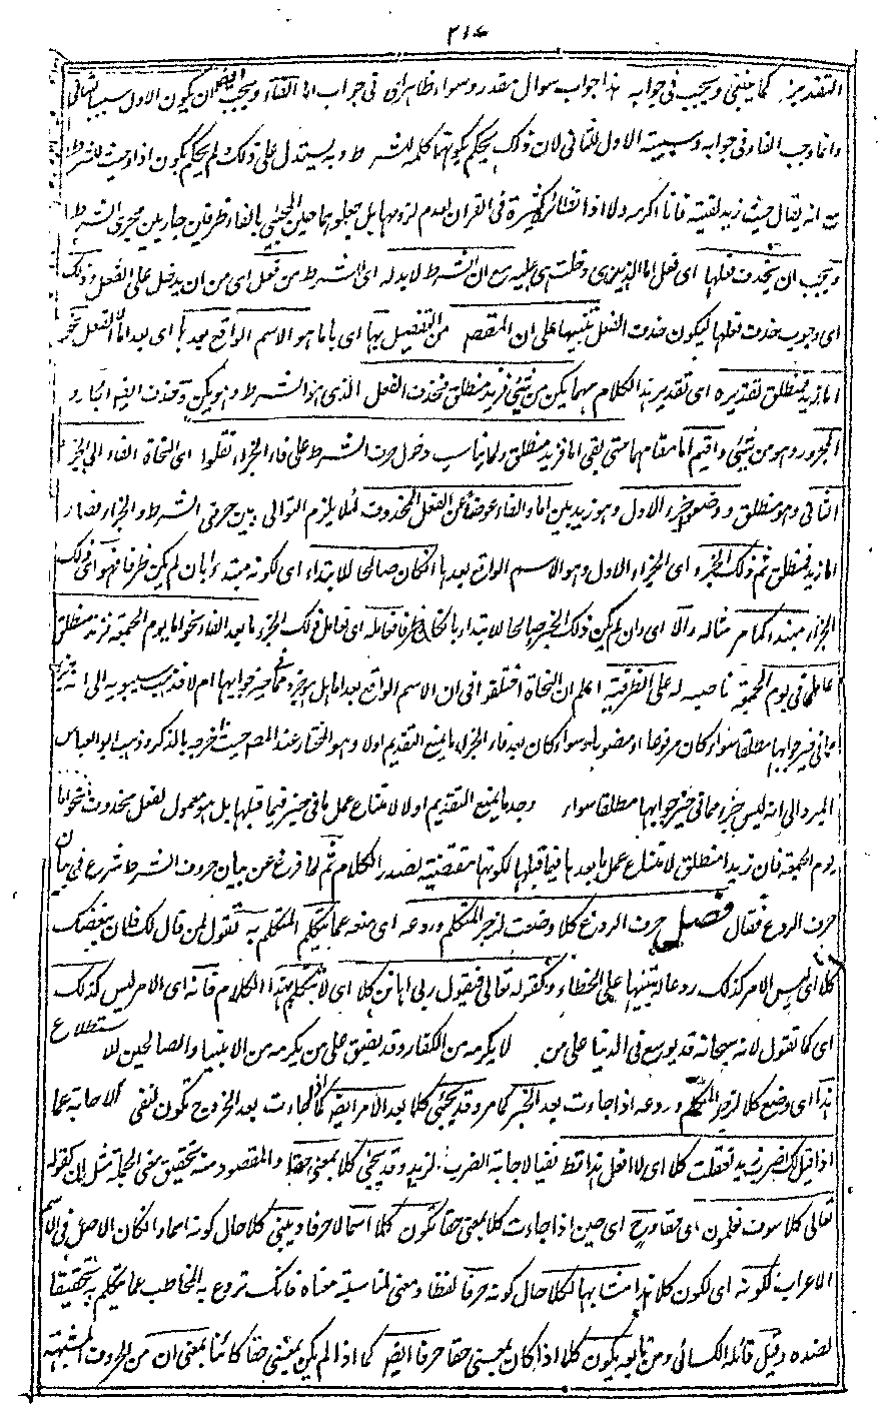 ٢١٤
التقديز كما ينبغى ويجب فى جوابه هذا جواب سوال مقدر وسواء ظاهر اى فى جواب اما الفاء ويجب ايضا ان يكون الاول سببا للثانى
وانما وجب الفاء فى جوابه وسببية الاول للثانى لان ذلك يحكم بكونها كلمة الشرط وبه يستدل على ذلك لم يحكم بكون اذا وحيث للشرط
مع انه يقال حيث زيد لقيته فانا اكرمه ولا اذا نظائره كثيرة فى القران لعدم لزومها بل جعلوهما حين المجئ بالفاء ظرفين جاريين مجرى الشرط
ويجب ان يحذف فعلها اى فعل اما الذى دخلت هى عليه مع ان الشرط لابد له اى الشرط من فعل اى من ان يدخل على الفعل وذلك
اى وجوب حذف فعلها ليكون حذف الفعل تنبيها على ان المقصود من التفصيل بها اى باما هو الاسم الواقع بعدها اى بعد اما لا الفعل نحو
اما زيد فمنطلق تقديره اى تقدير هذا الكلام مهما يكن من شئ فزيد منطلق فحذف الفعل الذى هو الشرط وهو يكن وحذف ايضا الجار و
المجرور وهو من شئ واقيم اما مقام مهما حتى بقى اما فزيد منطلق ولما لم يناسب دخول حرف الشرط على فاء الجزاء نقلوا اى النحاة الفاء الى الجزء
الثانى وهو منطلق ووضعوا الجزء الاول وهو زيد بين اما والفاء عوضا عن الفعل المحذوف لئلا يلزم التوالى بين حرفى الشرط والجزاء فصار
اما زيد فمنطلق ثم ذلك الجزء اى الجزء الاول وهو الاسم الواقع بعدها ان كان صالحا للابتداء اى لكونه مبتدء بان لم يكن ظرفا فهو اى ذلك
الجزء مبتدء كما مر مثاله والا اى وان لم يكن ذلك الجزء صالحا للابتداء بان كان ظرفا فعامله اى فعامل ذلك الجزء ما بعد الفاء نحو اما يوم الجمعة فزيد منطلق
عامل فى يوم الجمعة ناصب له على الظرفية اعلم ان النحاة اختلفوا فى ان الاسم الواقع بعد اما هل هو جزء مما فى حيز جوابها ام لا فذهب سيبويه الى انه جزء
مما فى حيز جوابها مطلقا سواء كان مرفوعا او منصوبا وسواء كان بعد فاء الجزاء ما يمنع التقديم اولا وهو المختار عند المصـ حيث اخرجه بالذكر وذهب ابو العباس
المبرد الى انه ليس جزء مما فى حيز جوابها مطلقا سواء وجد ما يمنع التقديم اولا لامتناع عمل ما فى حيز فيما قبلها بل هو معمول لفعل محذوف نحو اما
يوم الجمعة فان زيدا منطلق لامتناع عمل ما بعدها فيما قبلها لكونها مقتضية لصدر الكلام ثم لما فرغ عن بيان حروف الشرط شرع فى بيان
حرف الردع فقال فصل حرف الردع كلا وضعت لزجر المتكلم وردعه اى منعه عما يتكلم المتكلم به تقول لمن قال لك فلان يبغضك
كلا اى ليس الامر كذلك ردعا له تنبيها على الخطاء وكقوله تعالى فيقول ربى اهانن كلا اى لا تتكلم بهذا الكلام فانه اى الامر ليس كذلك
اى كما تقول لانه سبحانه قد يوسع فى الدنيا على من لا يكرمه من الكفار وقد يضيق على من يكرمه من الانبياء والصالحين للاستطلاع
هذا اى وضع كلا لزجر المتكلم وردعه اذا جاءت بعد الخبر كما مر وقد يجئ كلا بعد الامر ايضا كما انها جاءت بعد الخروج تكون لنفى الاجابة عما
اذا قيل لك اضرب زيدا فقلت كلا اى لا افعل هذا قط نفيا لاجابة الضرب لزيد وقد يجئ كلا بمعنى حقا والمقصود منه تحقيق معنى الجملة مثل ان كقوله
تعالى كلا سوف تعلمون اى حقا وح اى حين اذا جاءت كلا بمعنى حقا تكون كلا اسما لا حرفا ويبنى كلا حال كونه اسما وان كان الاصل فى الاسم
الاعراب لكونه اى لكون كلا هذا مشابها لكلا حال كونه حرفا لفظا ومعنى لمناسبة معناه فانك تروع به المخاطب عما يتكلم به تحقيقا
لضده وقيل قائله الكسائى ومن تابعه يكون كلا اذا كان بمعنى حقا حرفا ايضا كما اذا لم يكن بمعنى حقا كائنا بمعنى ان من الحروف المشبهة